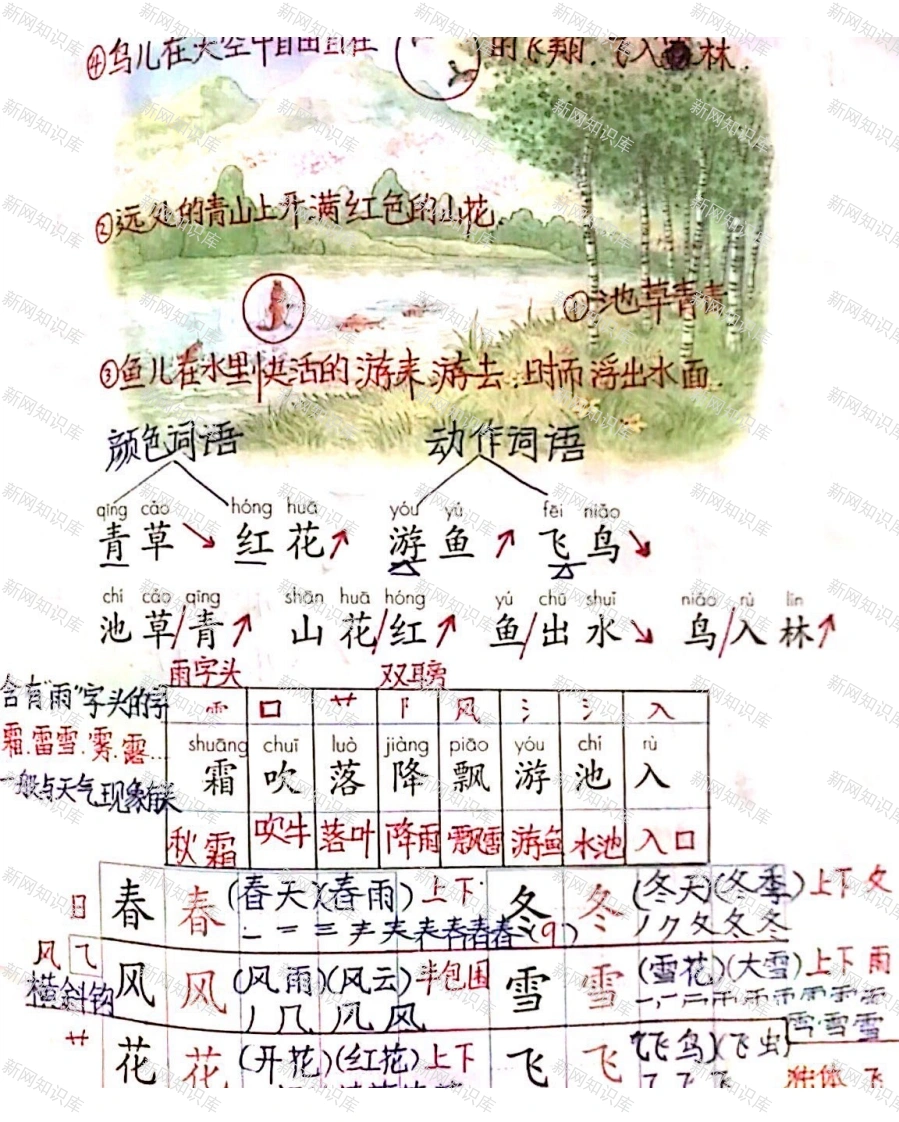 ④鸟儿在天空中自由自在的飞翔.飞入 林.
②远处的青山上开满红色的山花.
①池草青青
③鱼儿在水里快活的游来游去.时而浮出水面.
颜色词语 动作词语
qīng cǎo hóng huā yóu yú fēi niǎo
青草↘ 红花↗ 游鱼↗ 飞鸟↘
chí cǎo qīng shān huā hóng yú chū shuǐ niǎo rù lín
池草/青↗ 山花/红↗ 鱼/出水↘ 鸟/入林↗
雨字头 双耳旁
含有"雨"字头的字
霜.雷雪.雾.露...
一般与天气现象有关
⻗ 口 艹 阝 风 氵 氵 入
shuāng chuī luò jiàng piāo yóu chí rù
霜 吹 落 降 飘 游 池 入
秋霜 吹牛 落叶 降雨 飘雪 游鱼 水池 入口
日 春 春 (春天)(春雨) 上下 冬 冬 (冬天)(冬季) 上下 夂
(9)
风 ⺄ 风 风 (风雨)(风云) 半包围 雪 雪 (雪花)(大雪) 上下 雨
横斜钩
艹 花 花 (开花)(红花) 上下 飞 飞 (飞鸟)(飞虫) 独体 飞
新网知识库